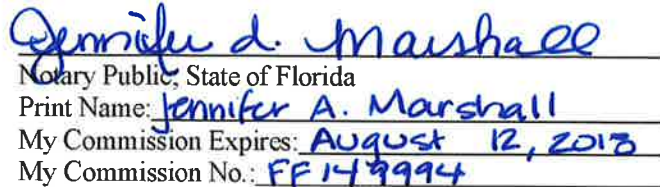 Jennifer A. Marshall
Notary Public, State of Florida
Print Name: Jennifer A. Marshall
My Commission Expires: August 12, 2018
My Commission No.: FF 149994